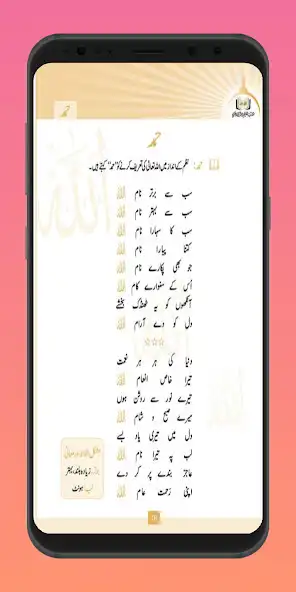 حمد
حمد
حمد: نظم کے انداز میں اللہ تعالیٰ کی تعریف کرنے کو "حمد" کہتے ہیں۔
سب سے برتر نام اللہ
سب سے بہتر نام اللہ
سب کا سہارا نام اللہ
کتنا پیارا نام اللہ
جو بھی پکارے نام اللہ
اُس کے سنوارے کام اللہ
آنکھوں کو یہ ٹھنڈک بخشے
دل کو دے آرام اللہ
☆☆☆
دنیا کی ہر ہر نعمت
تیرا خاص انعام اللہ
تیرے نور سے روشن ہوں
میرے صبح و شام اللہ
دل میں تیری یاد بسے
لب پہ تیرا نام اللہ
عاجز بندے پر کر دے
اپنی رحمت عام اللہ
برتر: زیادہ بلند، بہتر
لب: ہونٹ